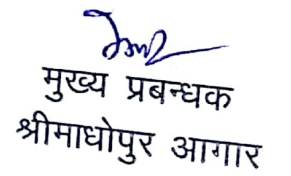 मुख्य प्रबन्धक
श्रीमाधोपुर आगार